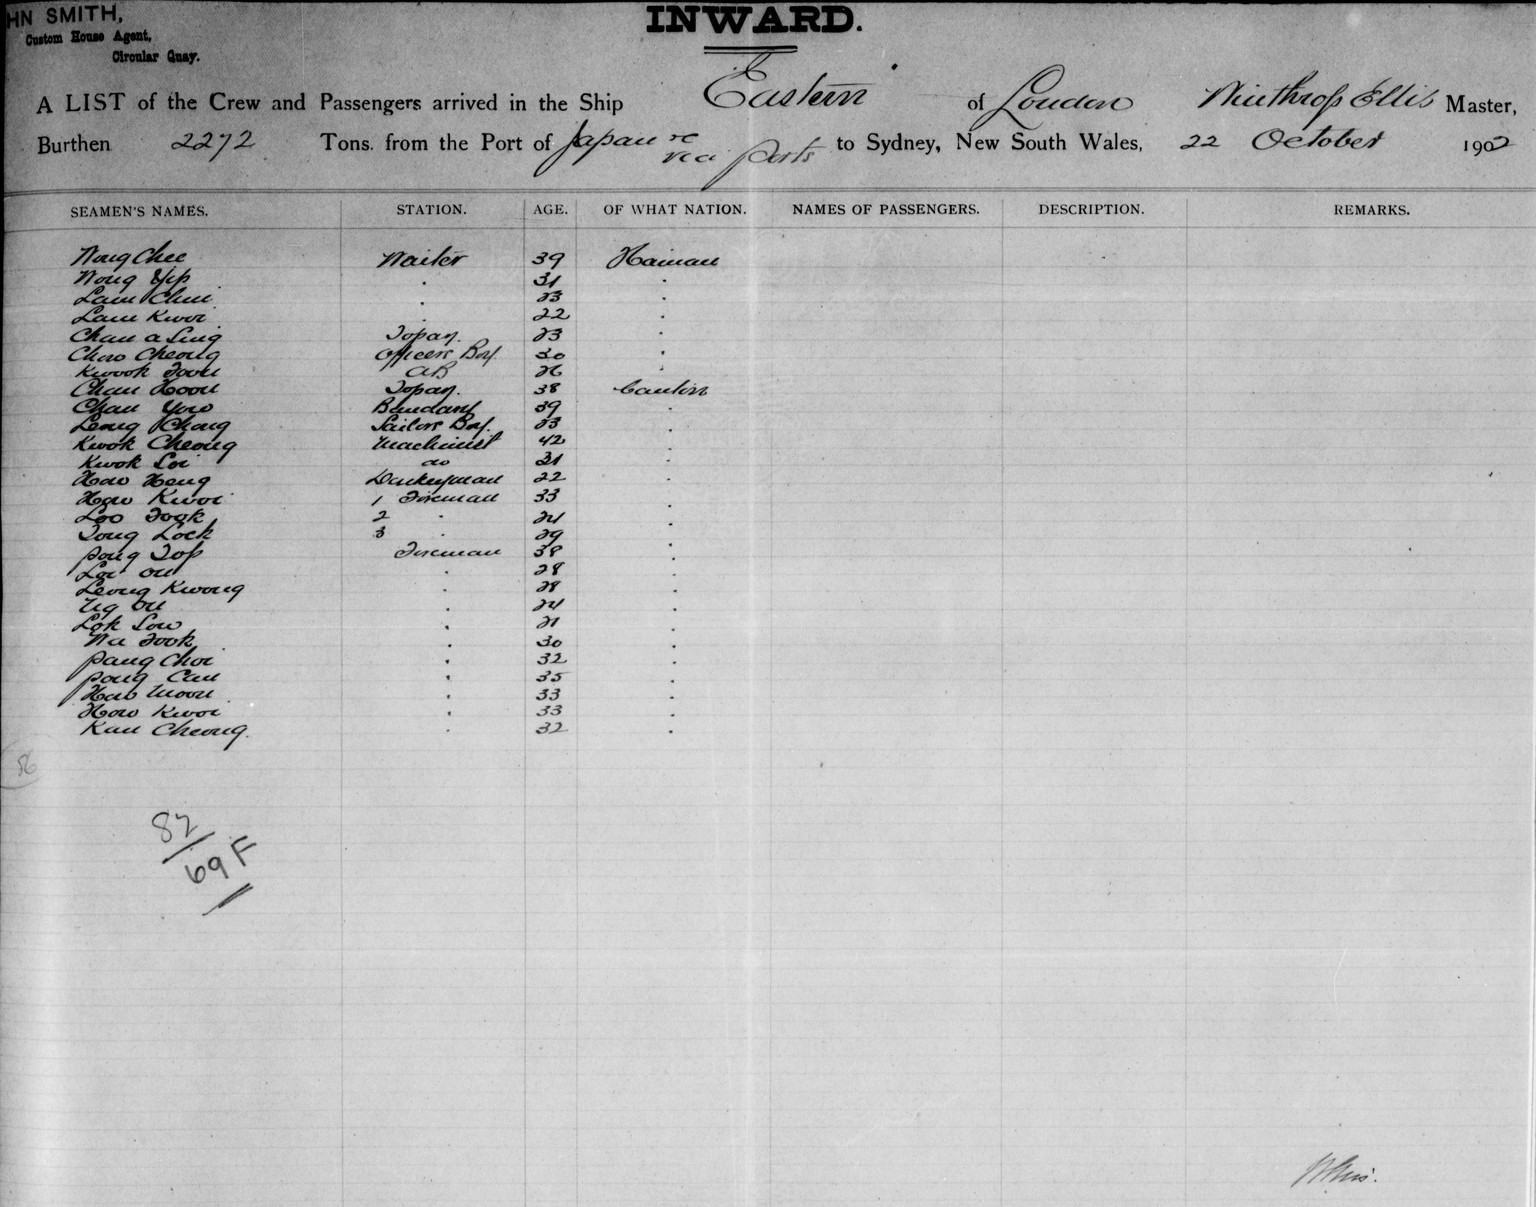 HN SMITH,
Custom House Agent,
Circular Quay.
INWARD.
A LIST of the Crew and Passengers arrived in the Ship Eastern of London Winthrop Ellis Master,
Burthen 2272 Tons. from the Port of Japan via ports to Sydney, New South Wales, 22 October 1902
SEAMEN'S NAMES. STATION. AGE. OF WHAT NATION. NAMES OF PASSENGERS. DESCRIPTION. REMARKS.
Wong Chee Waiter 39 Hainan
Wong Yip . 31 .
Lam Chui . 23 .
Lam Kwoi . 22 .
Chan a Ling Topay. 23 .
Chow Cheong Officers Boy. 30 .
Kwook Foon AB 26 .
Chan Hoon Topay. 38 Canton
Chan Yow Bandary 39 .
Leong Chong Sailors Boy. 23 .
Kwok Cheong Machinist 42 .
Kwok Loi do 31 .
Hao Heng Donkeyman 22 .
How Kwoi 1 Fireman 33 .
Loo Fook 2 . 24 .
Tong Lock 3 . 29 .
Pong Top Fireman 38 .
Loi On . 28 .
Leong Kwong . 28 .
Ng On . 24 .
Lok Low . 21 .
Wa Fook . 30 .
Pang Choi . 32 .
Pong Can . 35 .
Hao Moon . 33 .
How Kwoi . 33 .
Kan Cheong. . 32 .
56
82/69 F